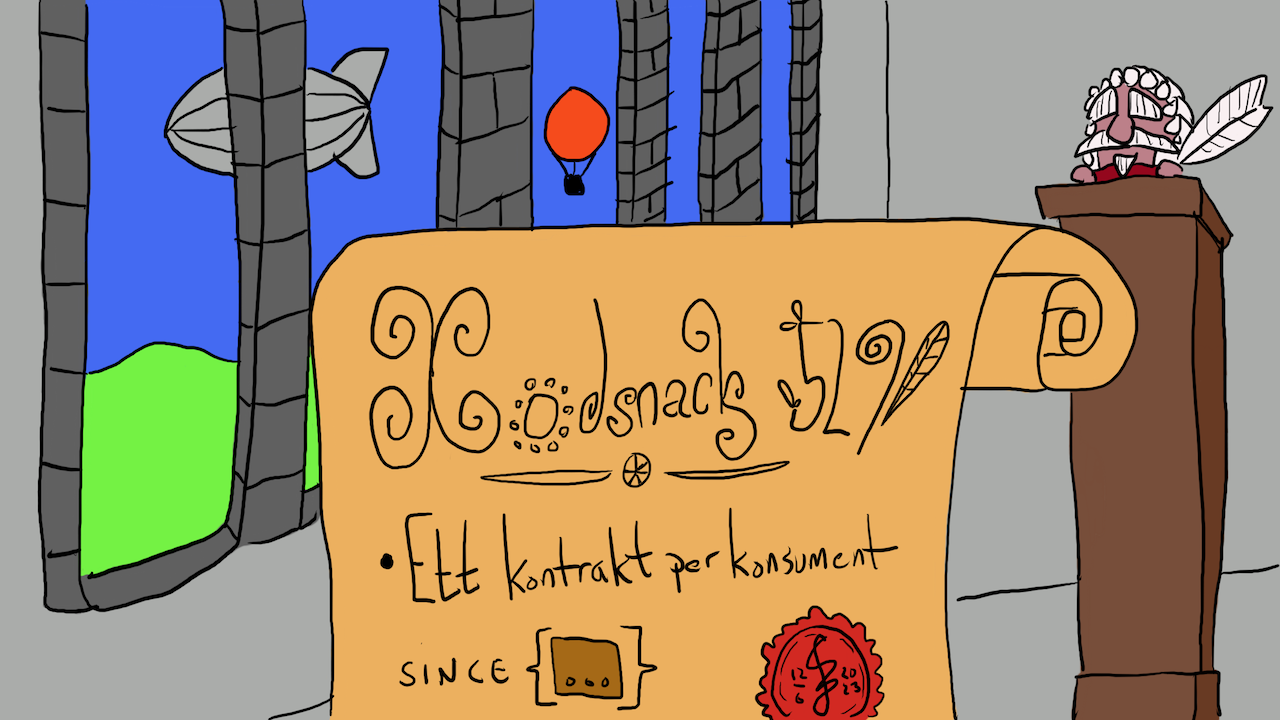 Kodsnack 529
• Ett kontrakt per konsument
SINCE {...}
12
6
20
23